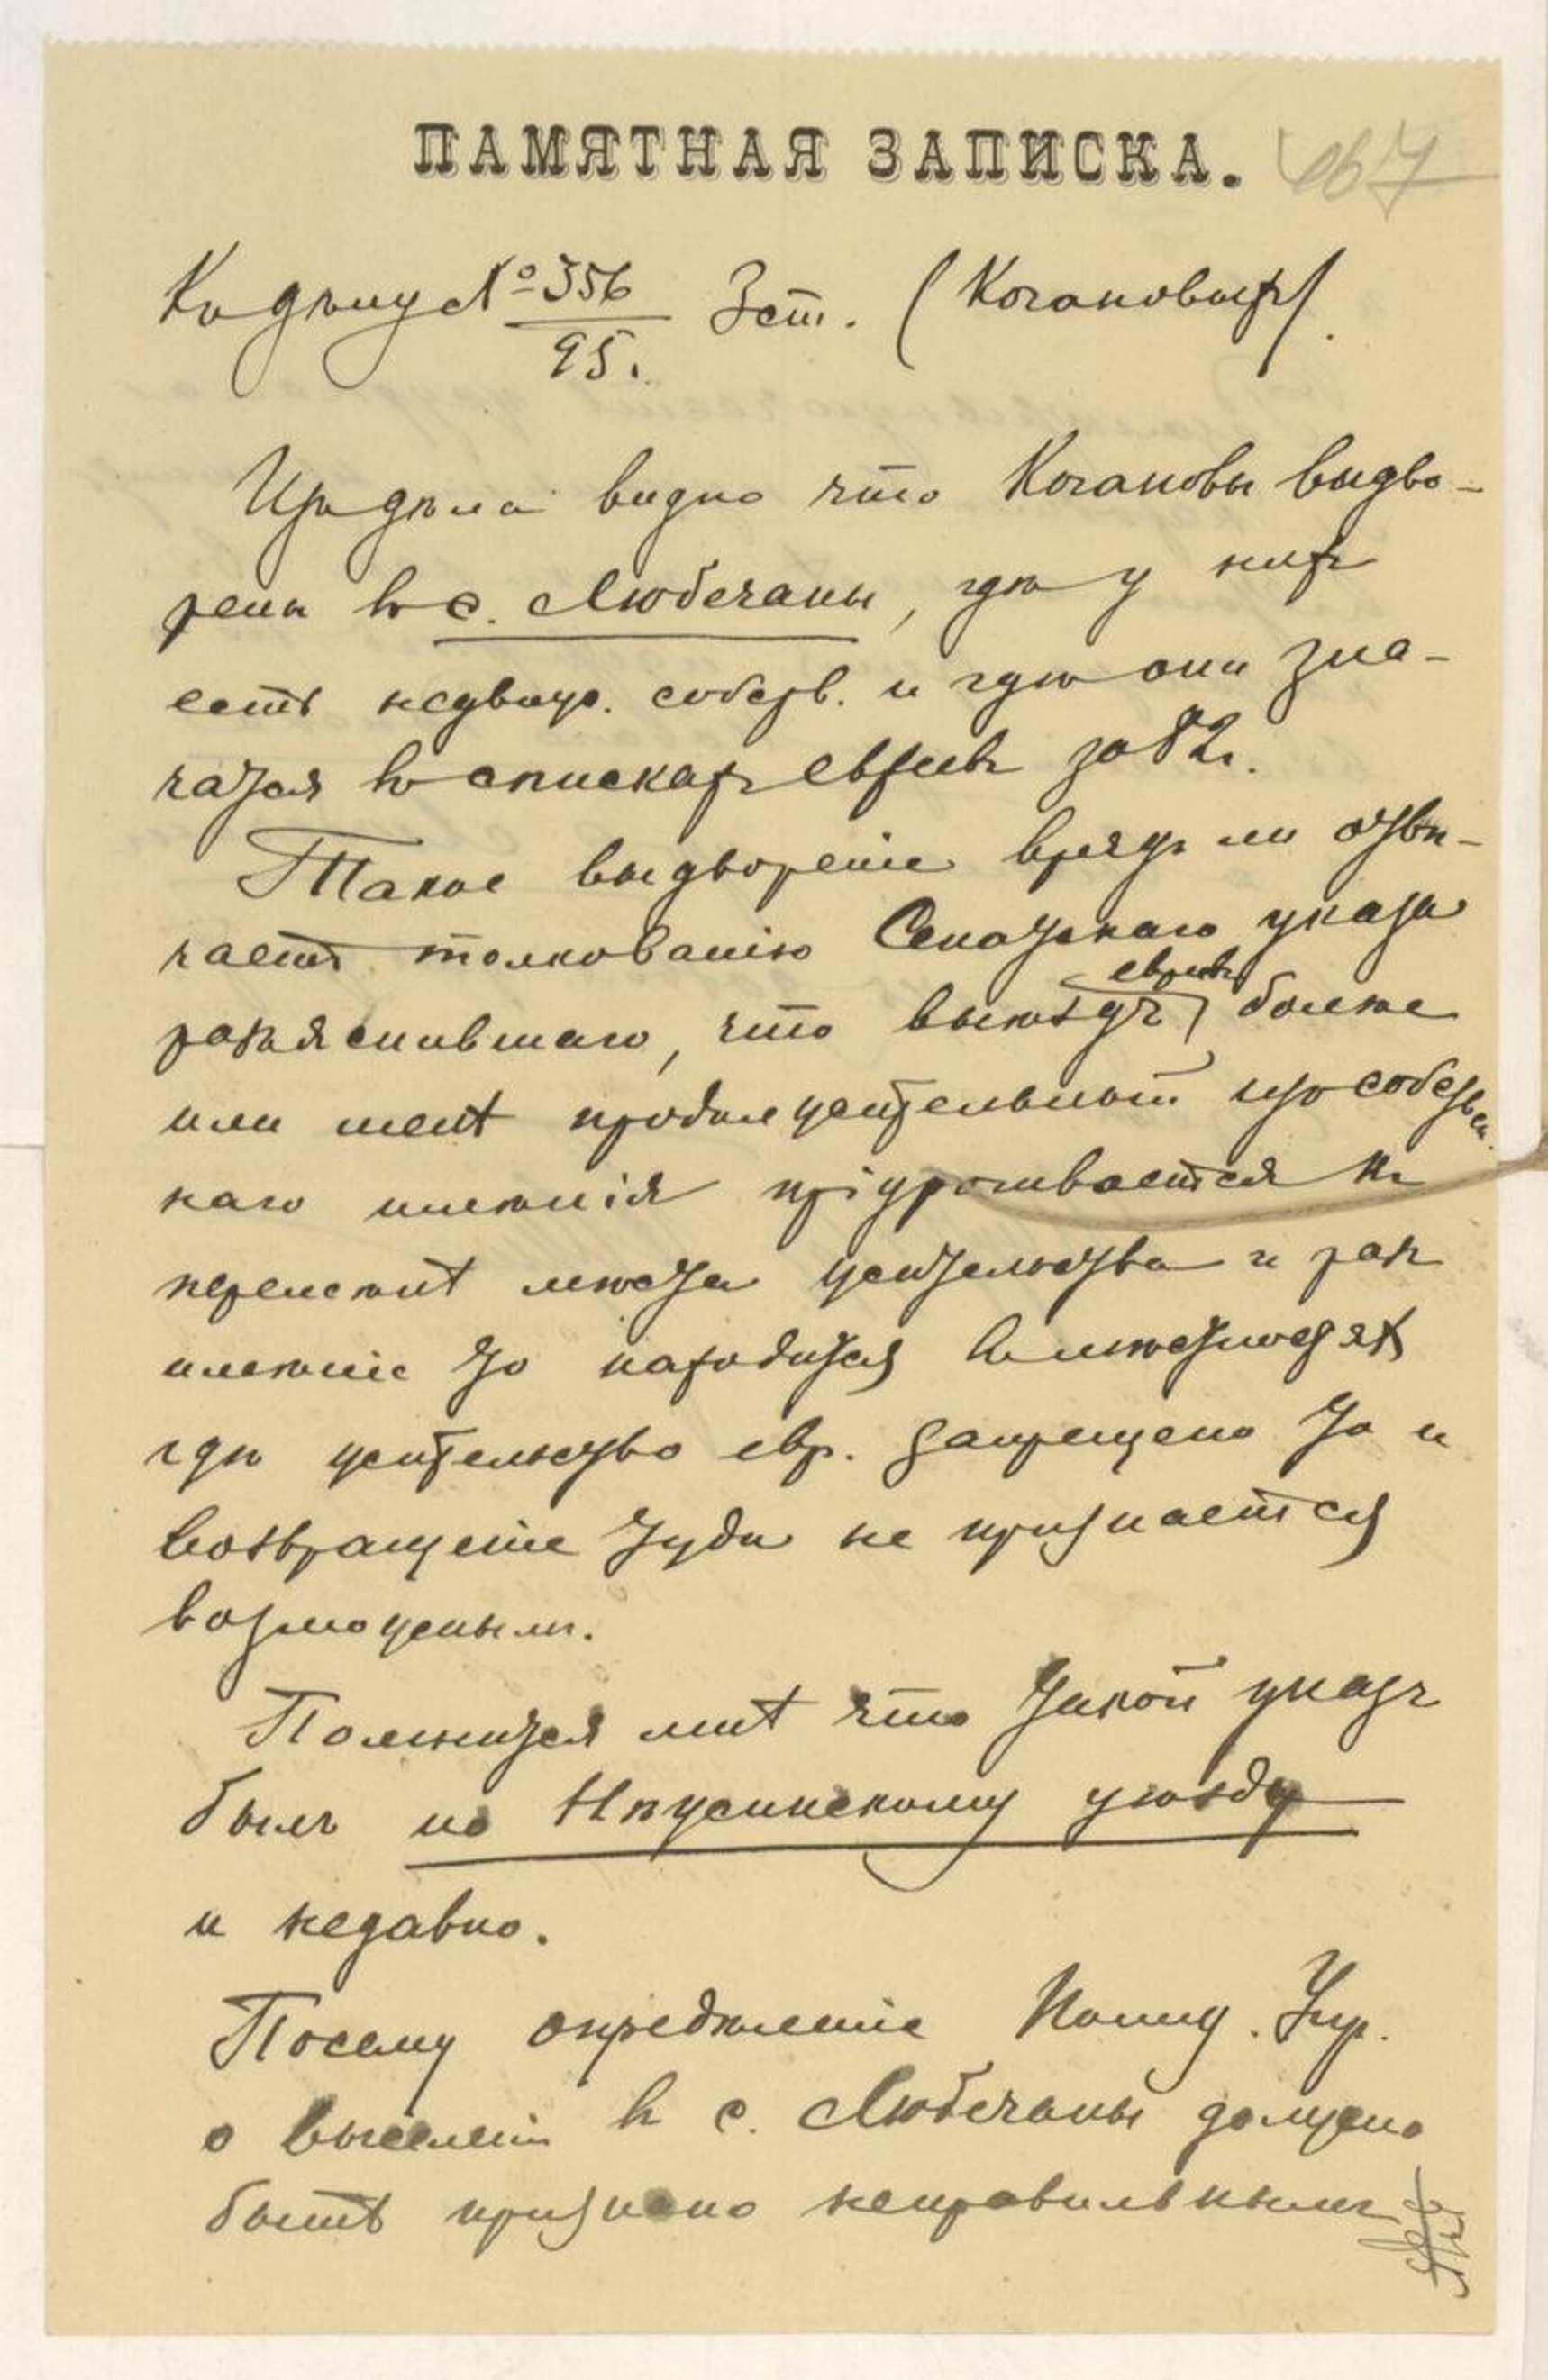 ПАМЯТНАЯ ЗАПИСКА.
Къ дѣлу № 356/95. 3 ст. (Когановыхъ).
Изъ дѣла видно что Когановы выдво-
рены въ с. Любечаны, гдѣ у нихъ
есть недвиж. собств. и гдѣ они зна-
чатся въ спискахъ евреевъ за 82 г.
Такое выдвореніе врядъ ли отвѣ-
чаетъ толкованію Сенатскаго указа
разъяснившаго, что выѣздъ евреевъ болѣе
или менѣ продолжительный изъ собствен.
наго имѣнія пріуравнивается къ
перемѣнѣ мѣста жительства и разъ
имѣніе то находится въ мѣстностяхъ
гдѣ жительство евр. запрещено то и
возвращеніе туда не признается
возможнымъ.
Помнится мнѣ что такой указъ
былъ по
уѣзду
и недавно.
Посему опредѣленіе Полиц. Упр.
о выселеніи въ с. Любечаны должно
быть признано неправильнымъ